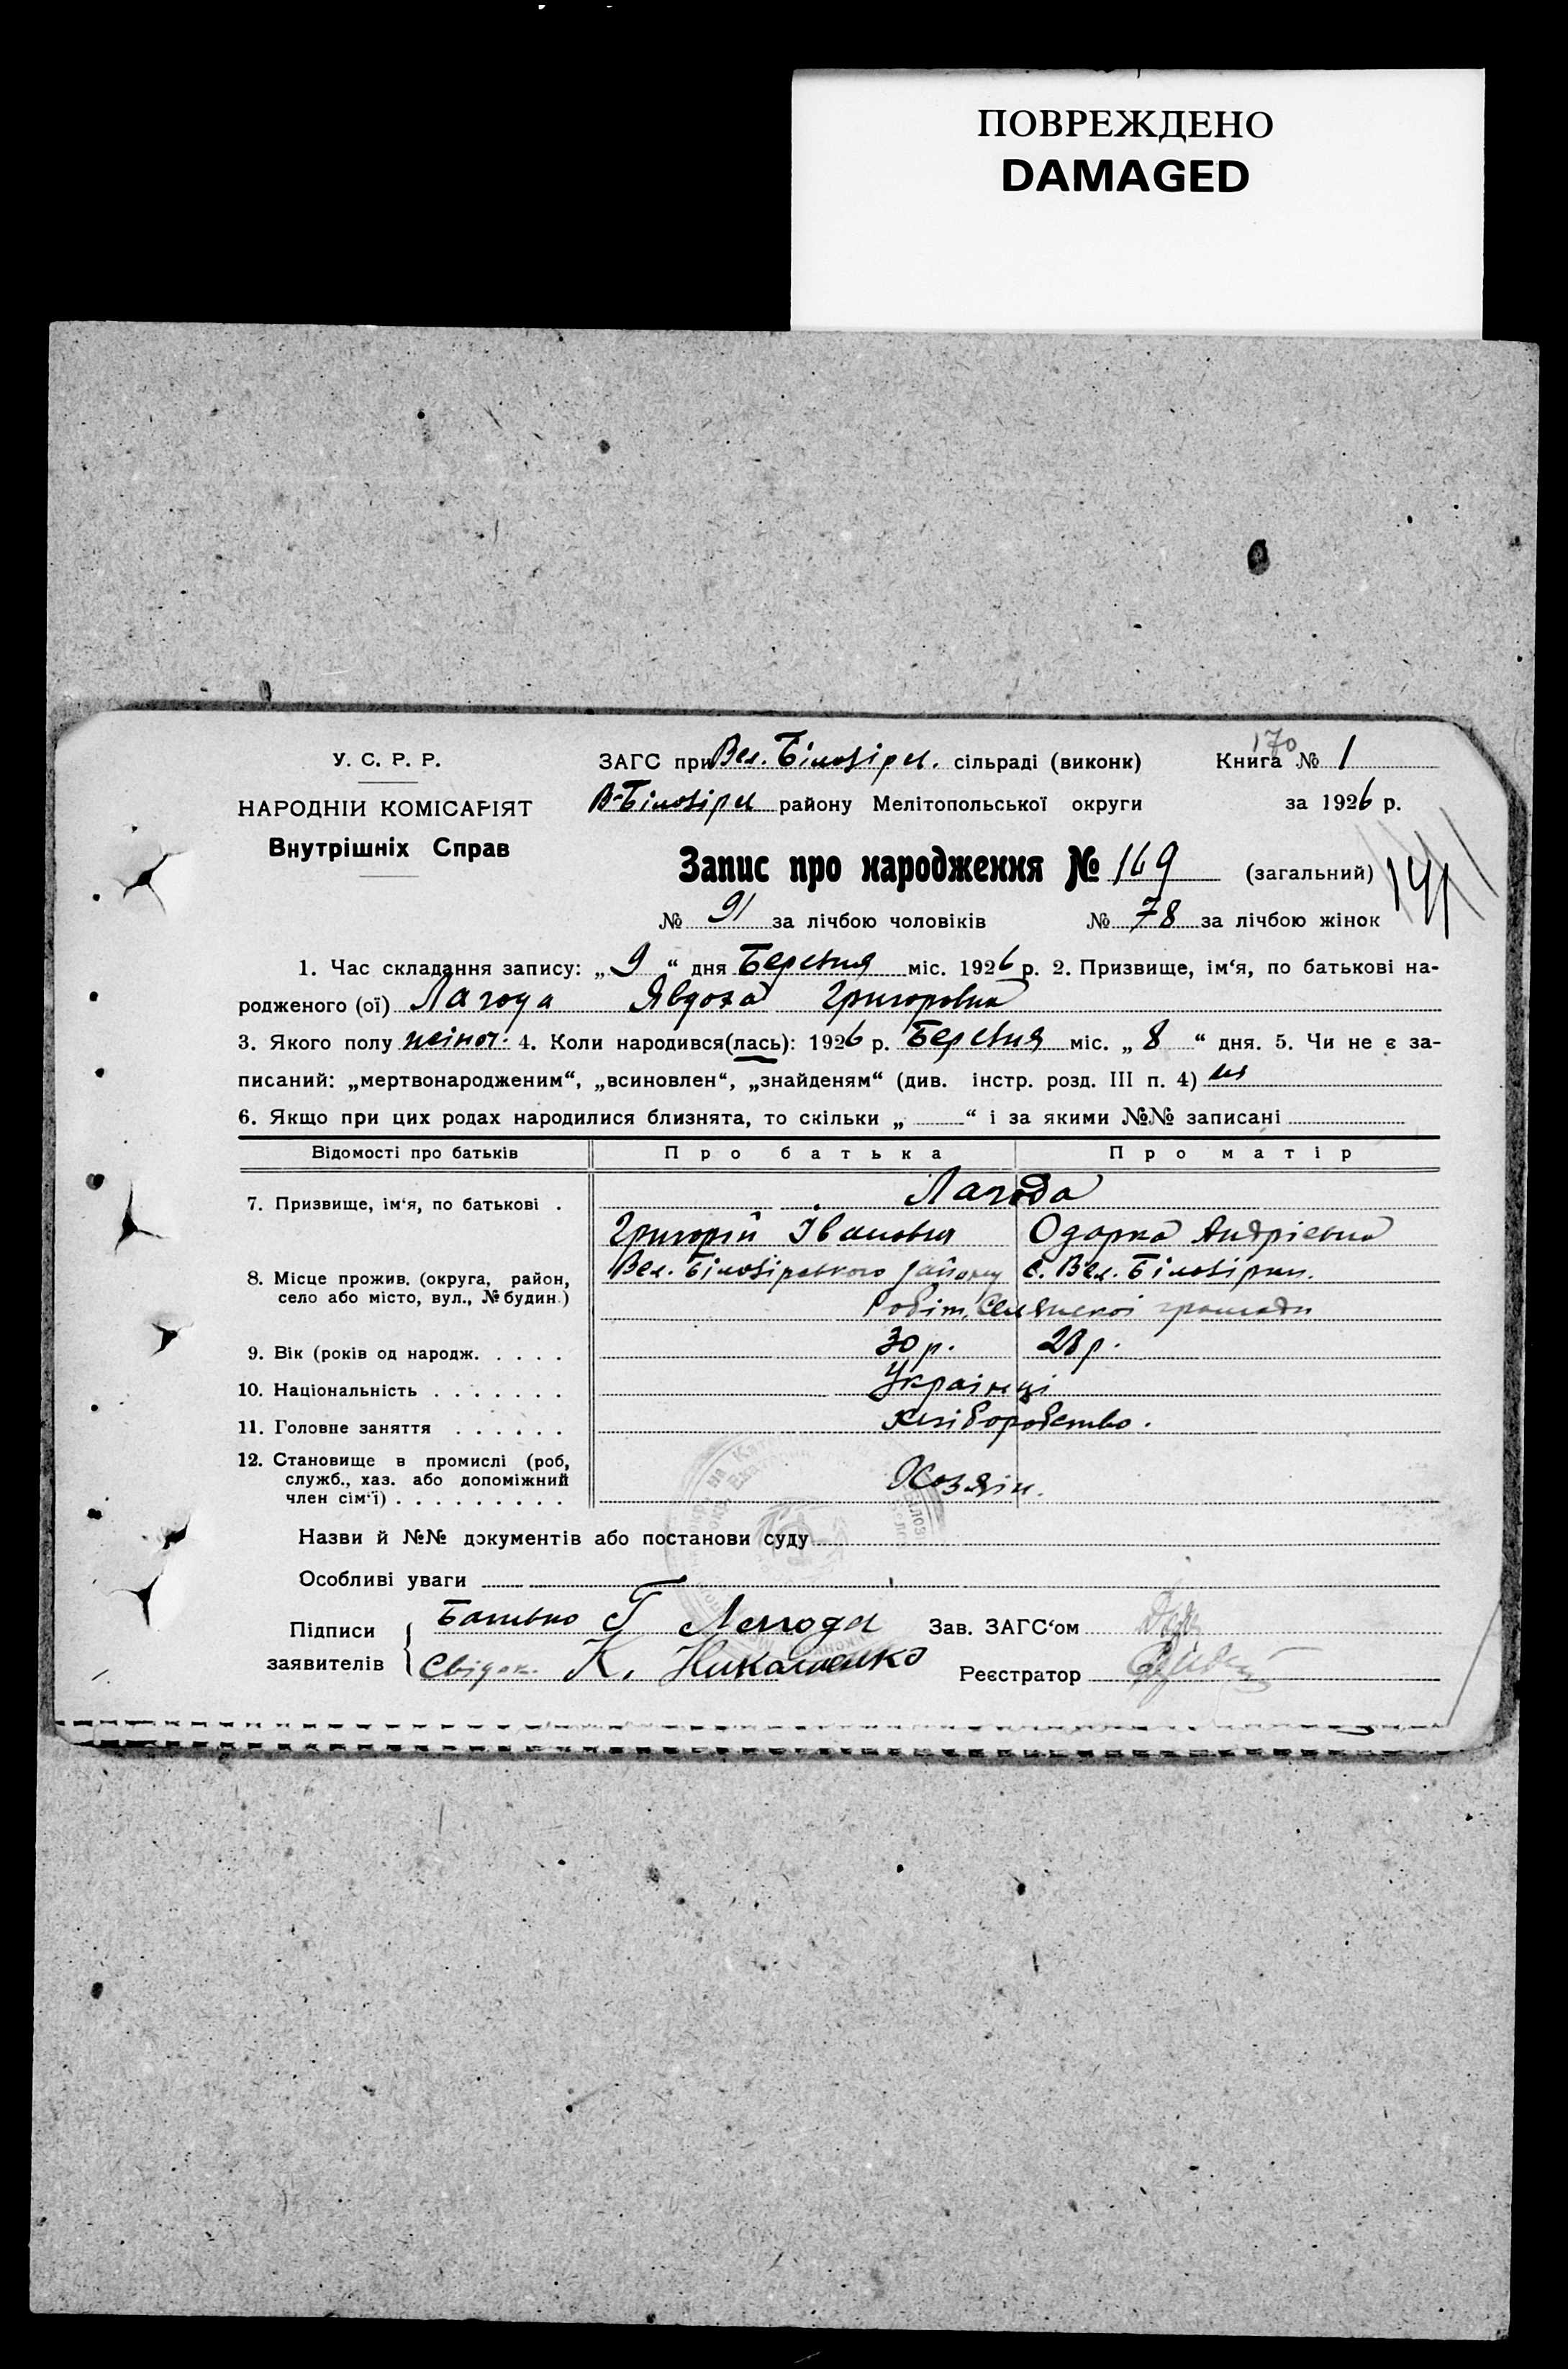 ПОВРЕЖДЕНО
DAMAGED
170
У. С. Р. Р. ЗАГС при Вел. Білозірс. сільраді (виконк) Книга № 1
НАРОДНІЙ КОМІСАРІЯТ В-Білозірс району Мелітопольської округи за 1926 р.
Внутрішніх Справ
Запис про народження № 169 (загальний) 141
№ 91 за лічбою чоловіків № 78 за лічбою жінок
1. Час складання запису: „ 9 “ дня Березня міс. 1926 р. 2. Призвище, ім‘я, по батькові на-
родженого (ої) Лагода Явдоха Григоровна
3. Якого полу жіноч. 4. Коли народився(лась): 1926 р. Березня міс. „ 8 “ дня. 5. Чи не є за-
писаний: „мертвонародженим“, „всиновлен“, „знайденям“ (див. інстр. розд. III п. 4) ні
6. Якщо при цих родах народилися близнята, то скільки „ “ і за якими №№ записані
Відомості про батьків Про батька Про матір
7. Призвище, ім‘я, по батькові . Лагода
Григорій Іванович Одарка Андрієвна
8. Місце прожив. (округа, район, село або місто, вул., № будин.) Вел. Білозірського району с. Вел. Білозірки.
Робіт. Селянскої громади
9. Вік (років од народж. . . . . 30 р. 28 р.
10. Національність . . . . . . . Українці
11. Головне заняття . . . . . . хліборобство.
12. Становище в промислі (роб, служб., хаз. або допоміжний член сім‘ї) . . . . . . . . . Хозяін.
Назви й №№ документів або постанови суду
Особливі уваги
Підписи заявителів Батько Г Лагода Зав. ЗАГС‘ом
Свідок. К. Николаенко Реєстратор